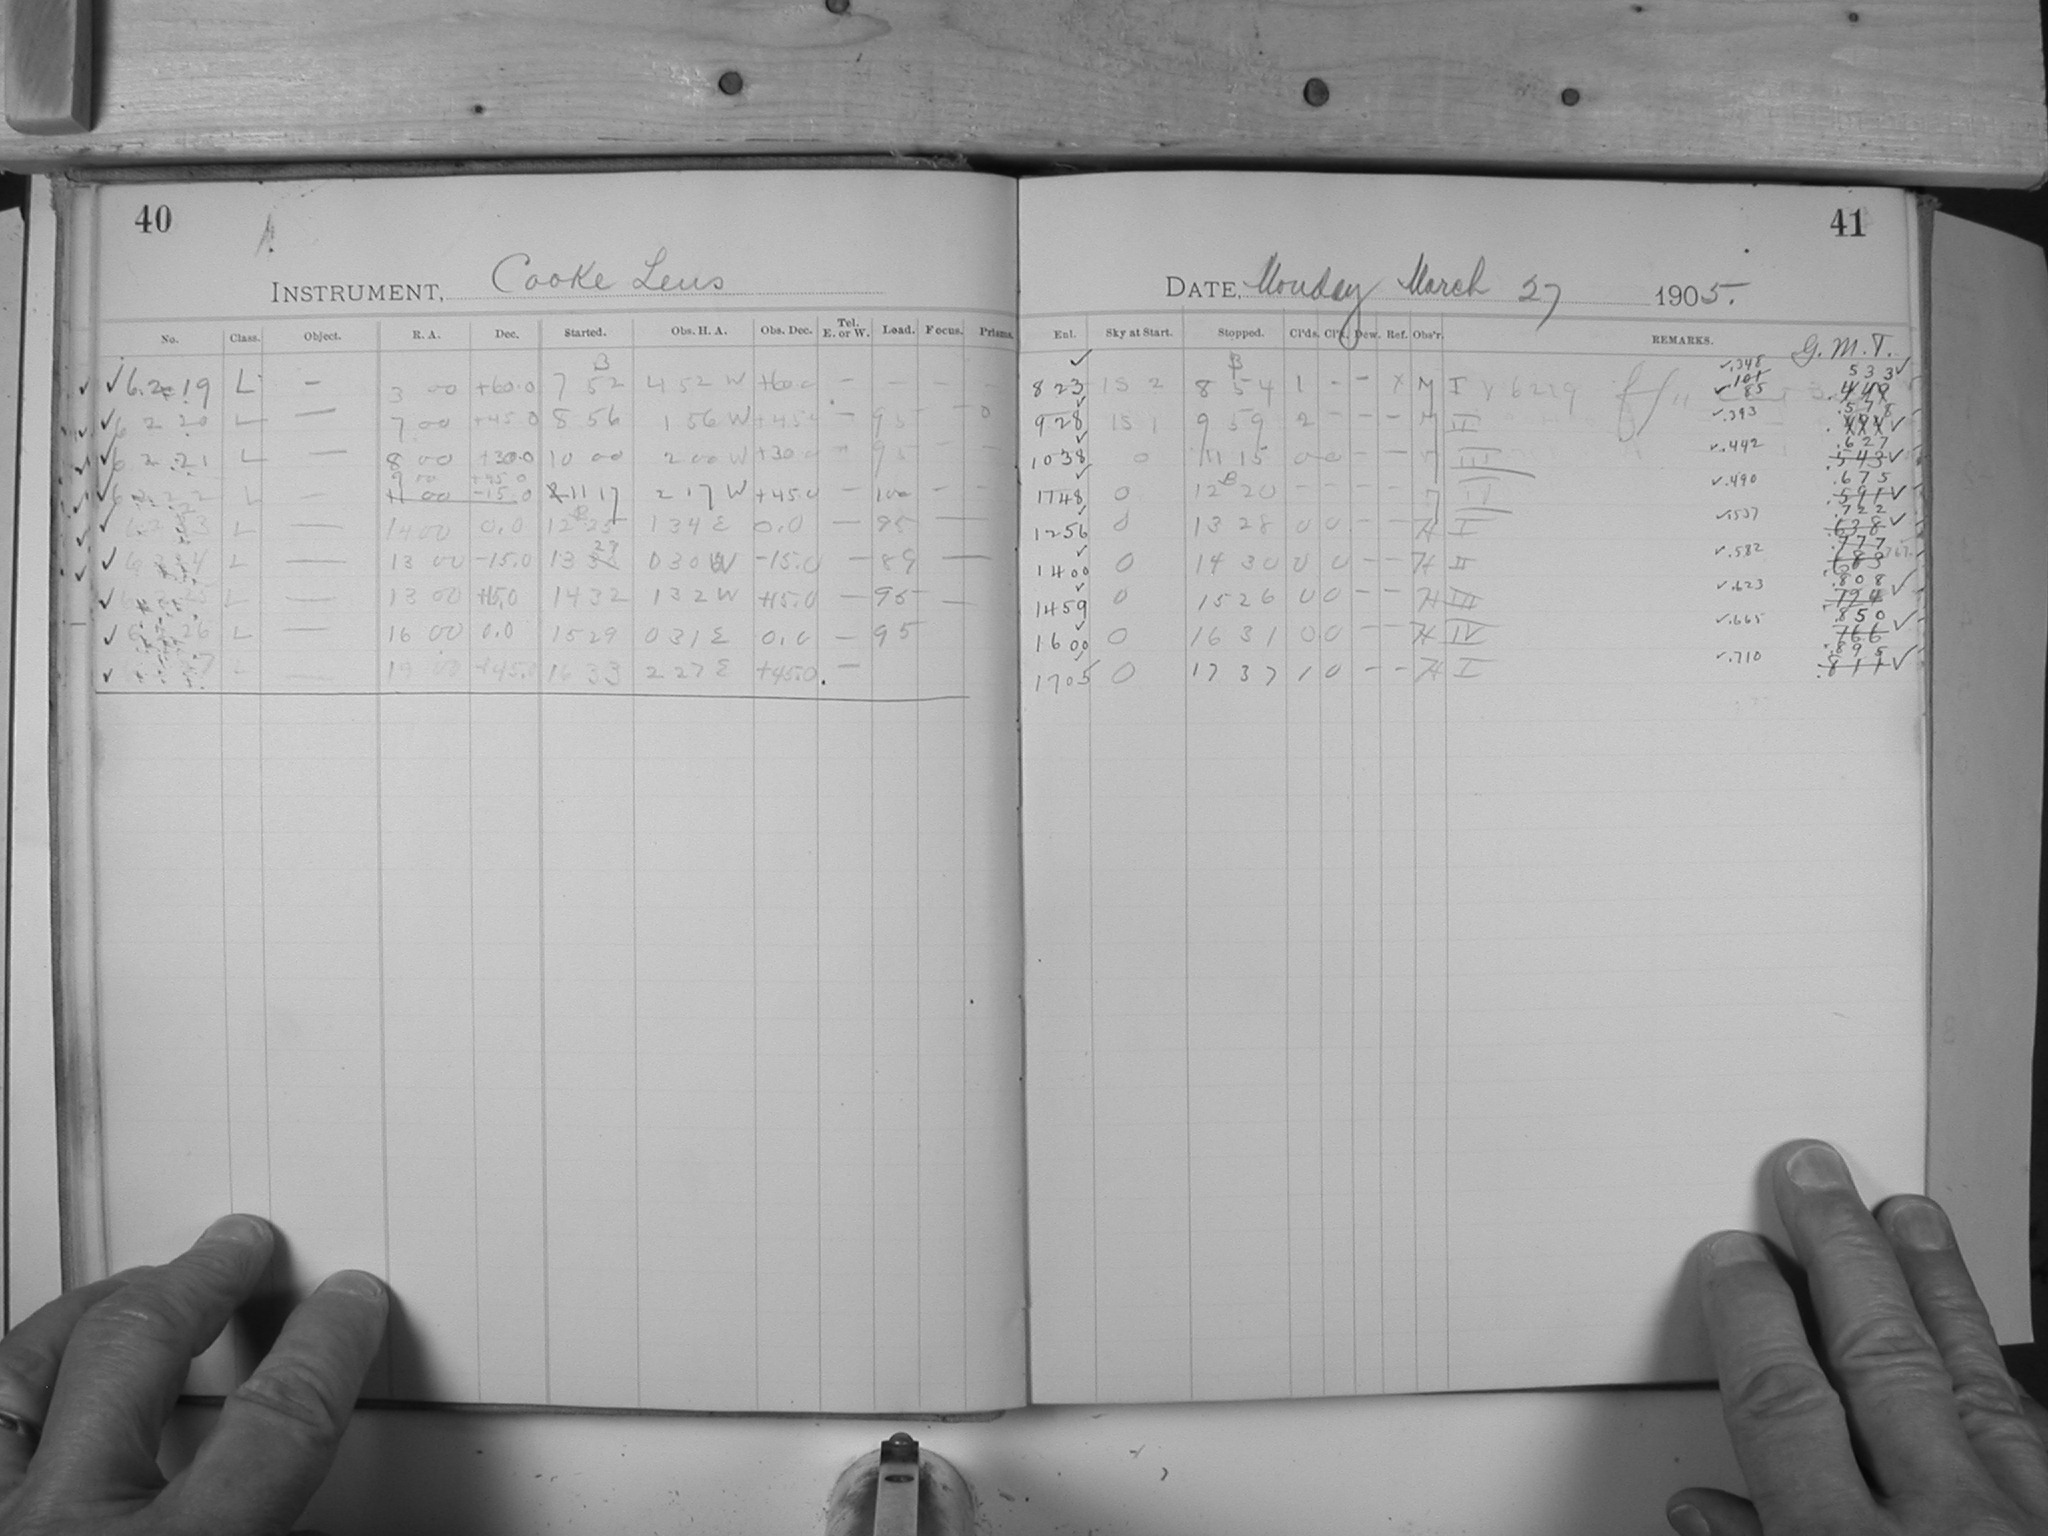 40
INSTRUMENT, Cooke Lens
No. Class. Object. R. A. Dec. Started. Obs. H. A. Obs. Dec. Tel. E. or W. Load. Focus. Prisms.
B
6219 L — 3 00 +60.0 7 52 4 52 W +60.0 — — — —
6220 L — 7 00 +45.0 8 56 1 56 W +45.0 — 95 —
6221 L — 8 00 +30.0 10 00 2 00 W +30.0 — 95 — —
9 00 +45.0
L — 11 00 -15.0 11 17 2 17 W +45.0 — 100 — —
L — 14 00 0.0 12 25 1 34 E 0.0 — 95 —
27
L — 13 00 -15.0 13 0 30 W -15.0 — 89 —
L — 13 00 +15.0 14 32 1 32 W +15.0 — 95 —
26 L — 16 00 0.0 15 29 0 31 E 0.0 — 95
7 L — 19 00 +45.0 16 33 2 27 E +45.0 —
41
DATE, Monday March 27 1905.
Enl. Sky at Start. Stopped. Cl'ds. Cl'r. Dew. Ref. Obs'r. REMARKS. G. M. T.
✓ B ✓.348 533 ✓
8 23 1S 2 8 54 1 - - X M I X 6219 f/11 ✓.85 .449
9 28 1S 1 9 59 2 - - M II ✓.393 .578 ✓
10 38 0 11 15 0 0 - - III ✓.442 .627 .543 ✓
11 48 0 12 20 - - - - IV ✓.490 .675 .591 ✓
12 56 0 13 28 0 0 - - H I ✓.537 .722 .638 ✓
14 00 0 14 30 0 0 - - H II ✓.582 .683
14 59 0 15 26 0 0 - - H III ✓.623 .808 ✓
16 00 0 16 31 0 0 - - H IV ✓.665 .850 .766 ✓
17 05 0 17 37 1 0 - - H I ✓.710 .895 .811 ✓